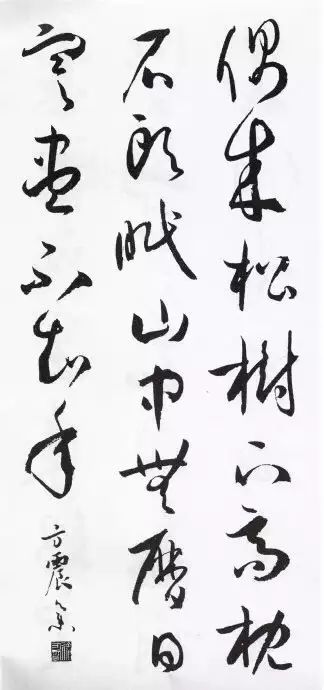 偶来松樹下高枕
石頭眠山中無曆日
寒盡不知年
方震